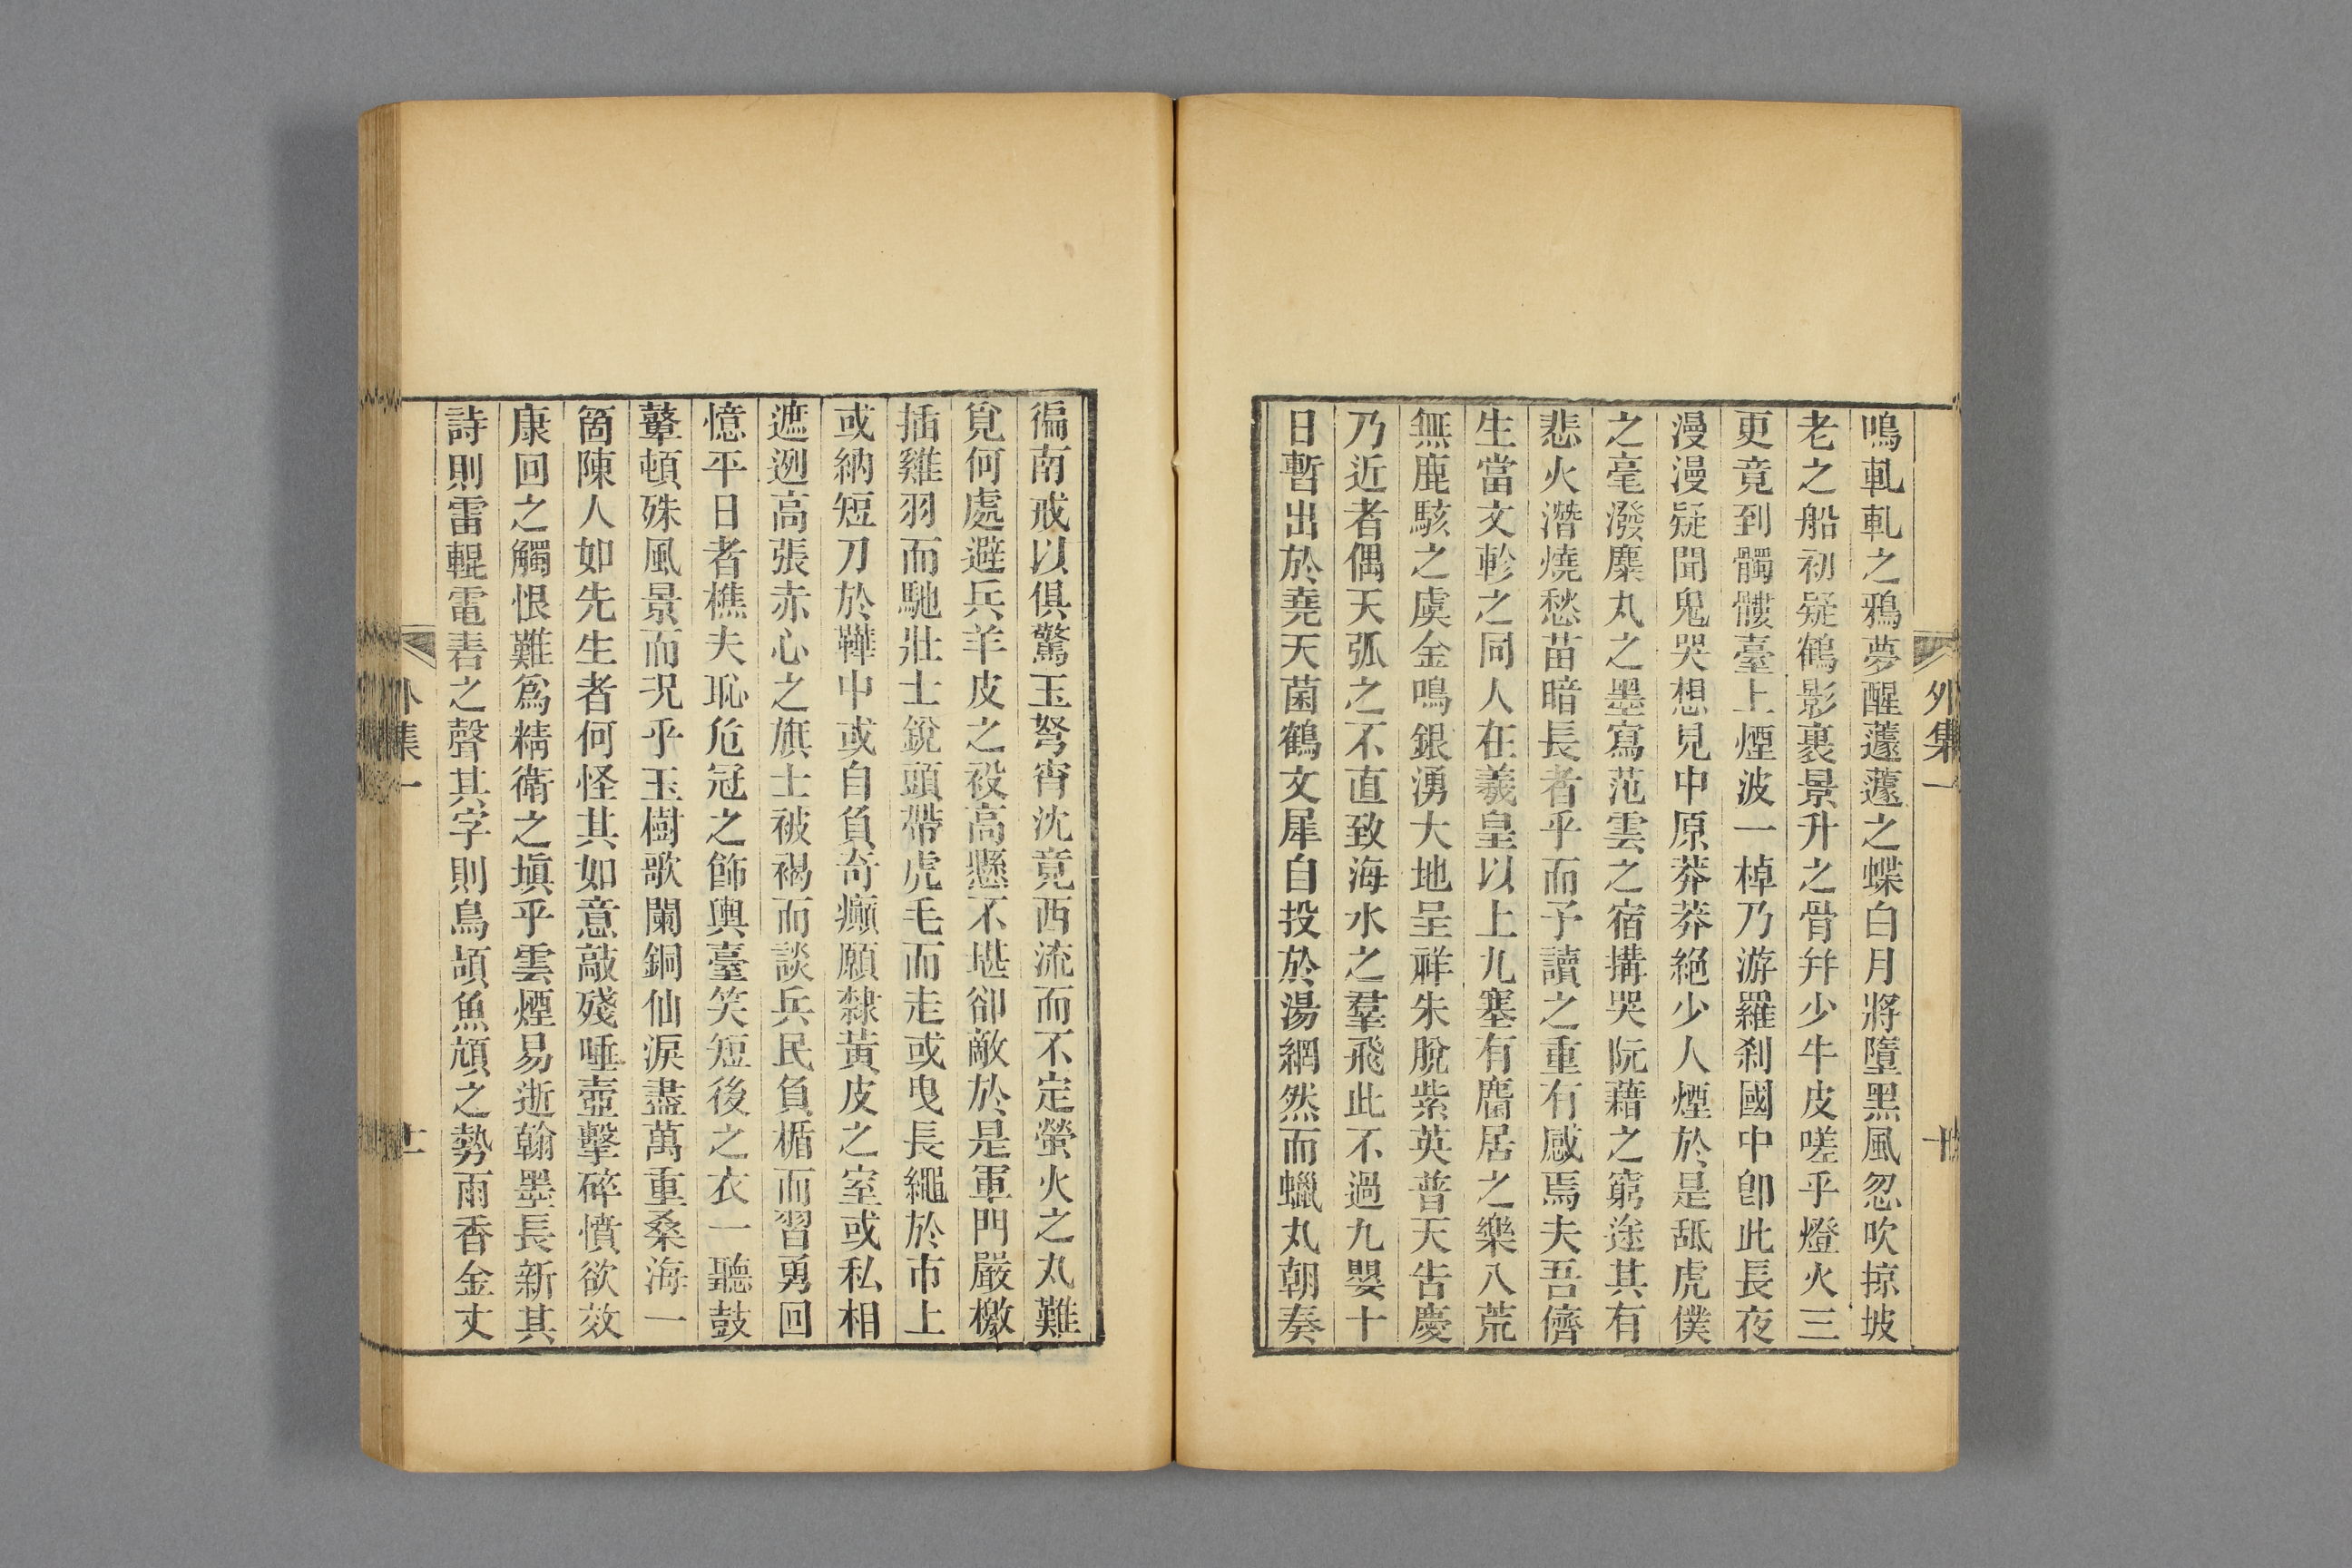 鳴軋軋之鴉夢醒蘧蘧之蝶白月將墮黑風忽吹掠坡
老之船初疑鶴影裹景升之骨幷少牛皮嗟乎燈火三
更竟到髑髏臺上煙波一棹乃游羅刹國中卽此長夜
漫漫疑聞鬼哭想見中原莽莽絕少人煙於是舐虎僕
之毫潑麋丸之墨寫范雲之宿搆哭阮藉之窮途其有
悲火潛燒愁苗暗長者乎而予讀之重有感焉夫吾儕
生當文軫之同人在羲皇以上九塞有麕居之樂八荒
無鹿駭之虞金鳴銀湧大地呈祥朱脫紫英普天告慶
乃近者偶天弧之不直致海水之羣飛此不過九嬰十
日暫出於堯天菌鶴文犀自投於湯網然而蠟丸朝奏
外集一
徧南戒以俱驚玉弩宵沈竟西流而不定螢火之丸難
覓何處避兵羊皮之祋高懸不堪卻敵於是軍門嚴檄
插雞羽而馳壯士銳頭帶虎毛而走或曳長繩於市上
或納短刀於鞾中或自負奇癲願隸黃皮之室或私相
遮迾高張赤心之旗士被褐而談兵民負楯而習勇回
憶平日者樵夫恥危冠之飾輿臺笑短後之衣一聽鼓
鼙頓殊風景而況乎玉樹歌闌銅仙淚盡萬重桑海一
箇陳人如先生者何怪其如意敲殘唾壺擊碎憤欲效
康回之觸恨難爲精衛之塡乎雲煙易逝翰墨長新其
詩則雷輥電砉之聲其字則鳥頡魚頏之勢雨香金丈
外集一